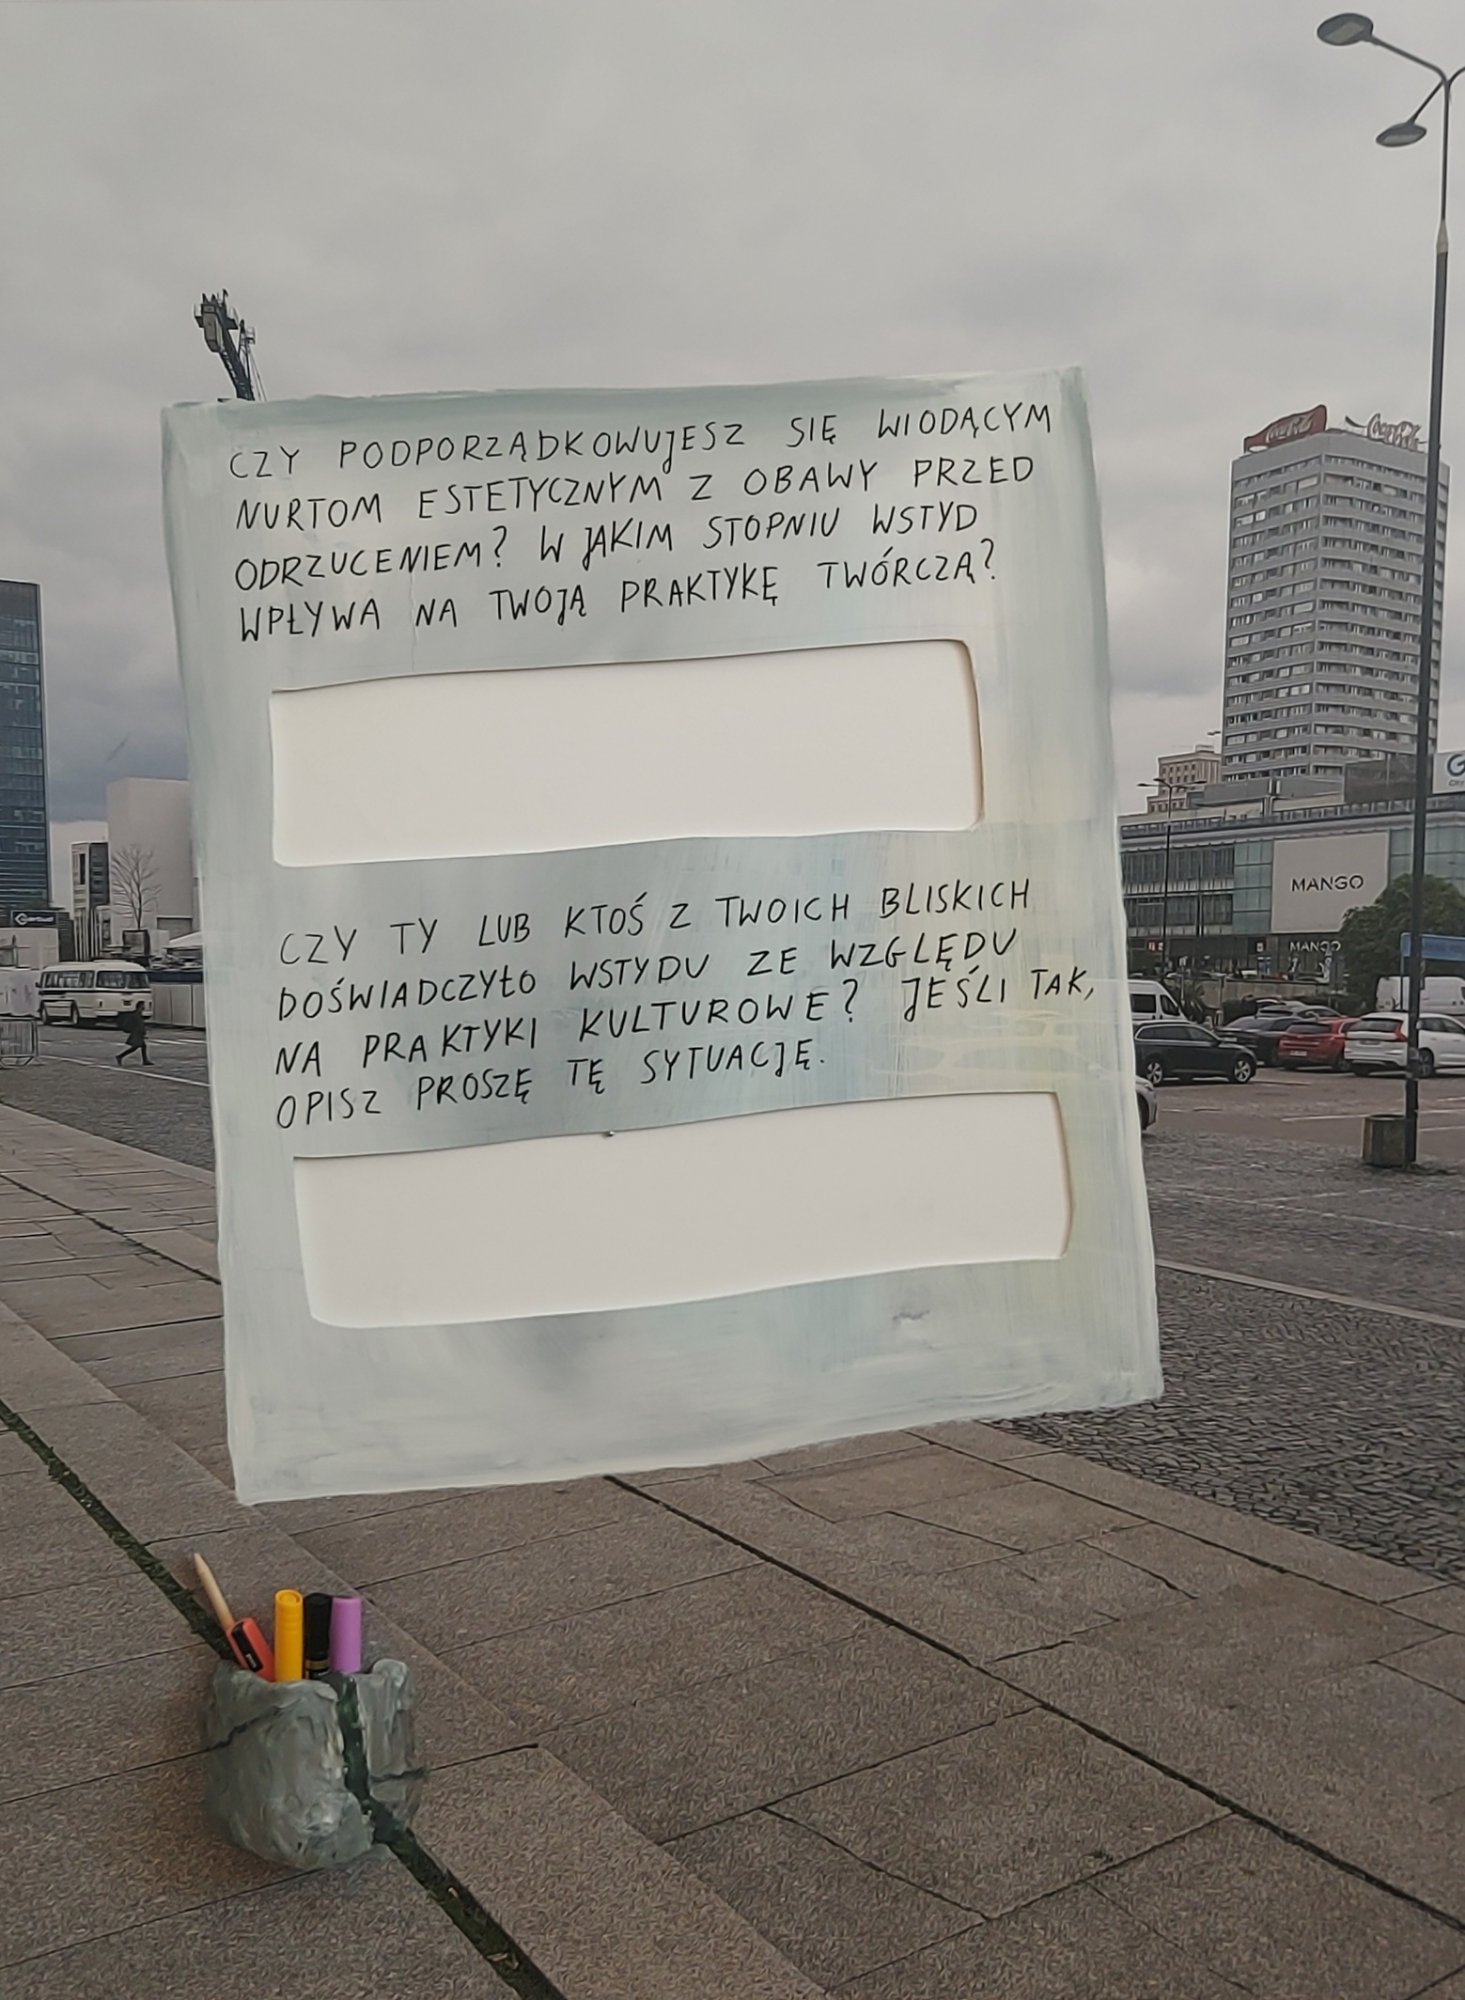 CZY PODPORZĄDKOWUJESZ SIĘ WIODĄCYM
NURTOM ESTETYCZNYM Z OBAWY PRZED
ODRZUCENIEM? W JAKIM STOPNIU WSTYD
WPŁYWA NA TWOJĄ PRAKTYKĘ TWÓRCZĄ?
CZY TY LUB KTOŚ Z TWOICH BLISKICH
DOŚWIADCZYŁO WSTYDU ZE WZGLĘDU
NA PRAKTYKI KULTUROWE? JEŚLI TAK,
OPISZ PROSZĘ TĘ SYTUACJĘ.
Coca-Cola Coca-Cola
MANGO
MANGO